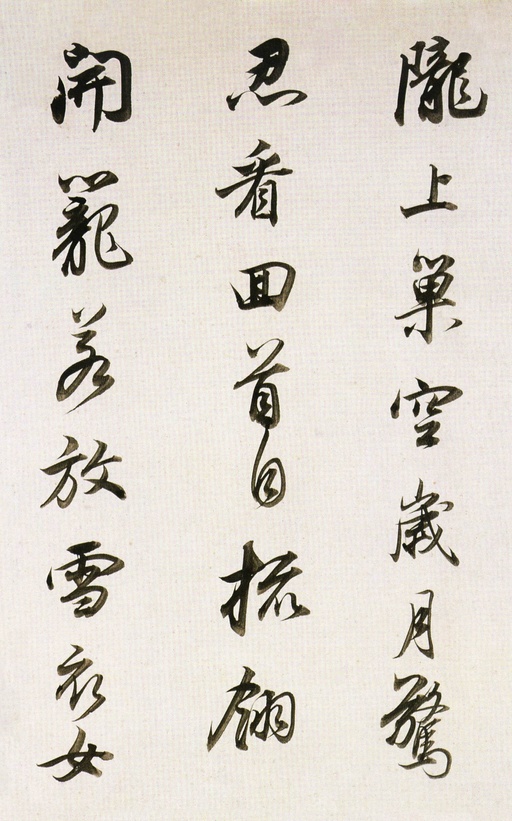 隴上巢空歲月驚
忍看回首自梳翎
開籠若放雪衣女